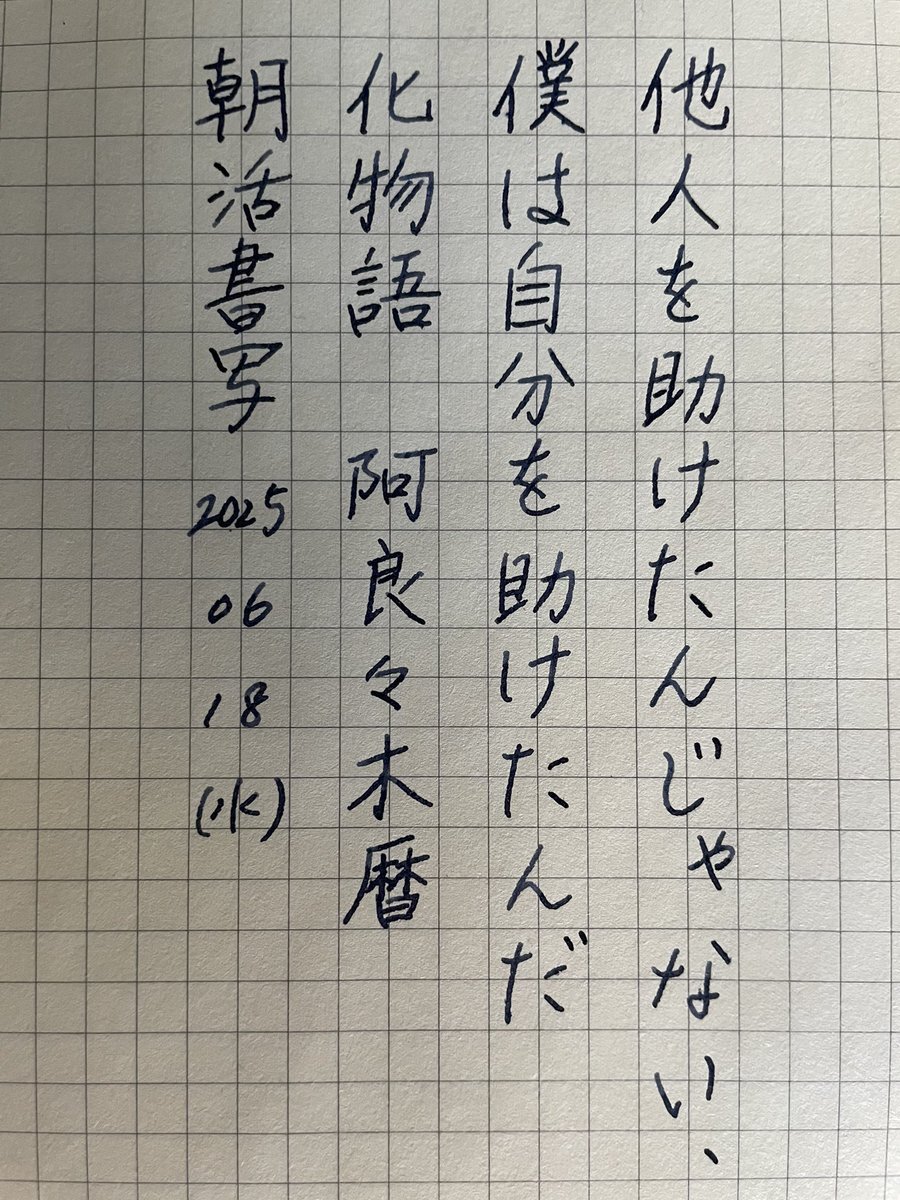 他人を助けたんじゃない、
僕は自分を助けたんだ
化物語　阿良々木暦
朝活書写 2025 06 18 (水)